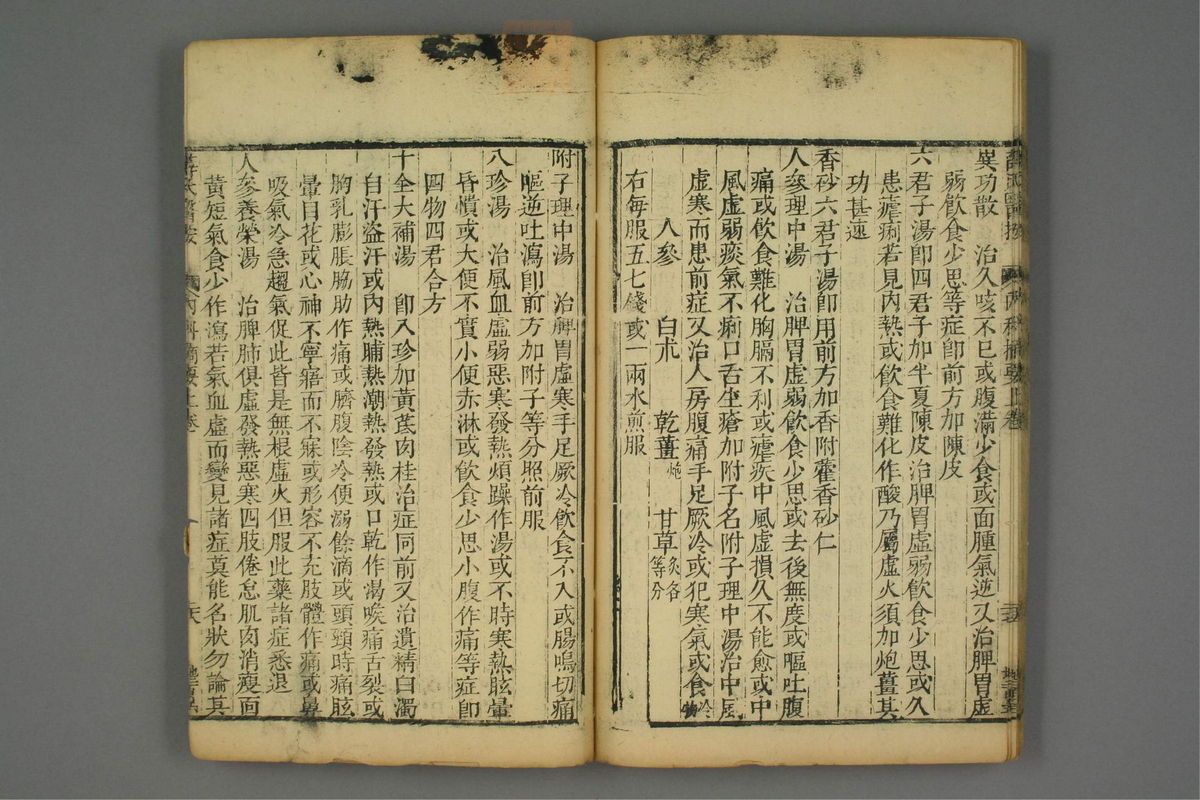 異功散　治久咳不已或腹滿少食或面腫氣逆又治脾胃虛
弱飲食少思等症卽前方加陳皮
六君子湯卽四君子加半夏陳皮治脾胃虛弱飲食少思或久
患瘧痢若見內熱或飲食難化作酸乃屬虛火須加炮薑其
功甚速
香砂六君子湯卽用前方加香附藿香砂仁
人參理中湯　治脾胃虛弱飲食少思或去後無度或嘔吐腹
痛或飲食難化胸膈不利或瘧疾中風虛損久不能愈或中
風虛弱痰氣不痢口舌生瘡加附子名附子理中湯治中風
虛寒而患前症又治人房腹痛手足厥冷或犯寒氣或食冷物
人參　白朮　乾薑炮　甘草炙各等分
右每服五七錢或一兩水煎服
附子理中湯　治脾胃虛寒手足厥冷飲食不入或腸鳴切痛
嘔逆吐瀉卽前方加附子等分照前服
八珍湯　治風血虛弱惡寒發熱煩躁作湯或不時寒熱眩暈
昏憒或大便不實小便赤淋或飲食少思小腹作痛等症卽
四物四君合方
十全大補湯　卽八珍加黃芪肉桂治症同前又治遺精白濁
自汗盜汗或內熱晡熱潮熱發熱或口乾作渴喉痛舌裂或
胸乳膨脹脇肋作痛或臍腹陰冷便溺餘滴或頭頸時痛眩
暈目花或心神不寧寤而不寐或形容不充肢體作痛或鼻
吸氣冷急趨氣促此皆是無根虛火但服此藥諸症悉退
人參養榮湯　治脾肺俱虛發熱惡寒四肢倦怠肌肉消瘦面
黃短氣食少作瀉若氣血虛而變見諸症莫能名狀勿論其
薛氏醫按　內科摘要上卷　六